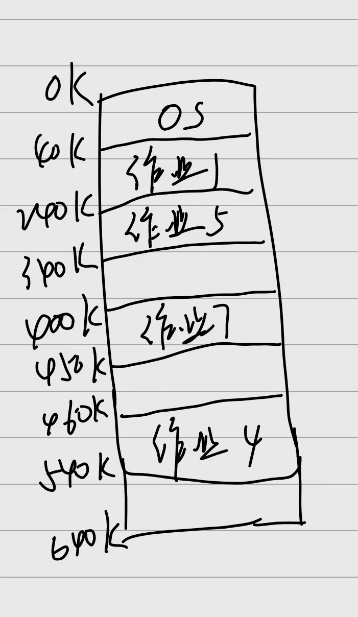 0K
OS
40K
作业1
240K
作业5
340K
400K
作业7
450K
460K
作业4
540K
640K